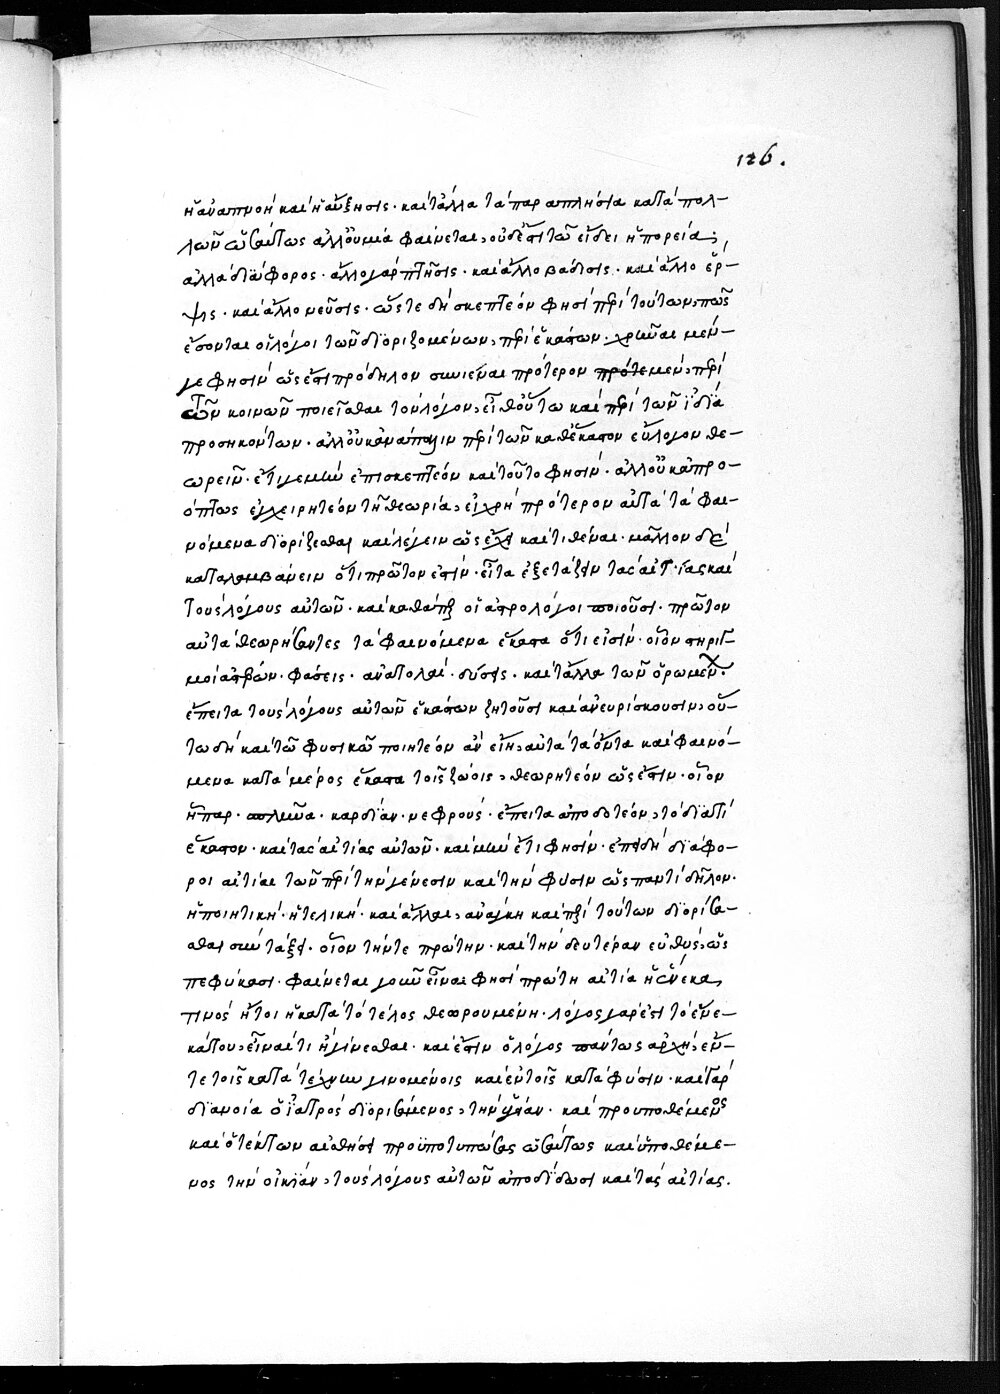 126.
ἡ ἀναπνοὴ καὶ ἡ αὔξησις· καὶ τἄλλα τὰ παραπλήσια κατὰ πολ-
λῶν ὡσαύτως ἀλλ' οὐ μία φαίνεται, οὐδ' ἔστι τῷ εἴδει ἡ πορεία,
ἀλλὰ διάφορος· ἄλλο γὰρ πτῆσις· καὶ ἄλλο βάδισις· καὶ ἄλλο ἕρ-
ψις· καὶ ἄλλο νεῦσις· ὥστε δὴ σκεπτέον φησὶ περὶ τούτων, πῶς
ἔσονται οἱ λόγοι τῶν διοριζομένων, περὶ ἑκάστων· μέν-
γε φησὶν ὡς ἔστι πρόδηλον συνιέναι πρότερον μὲν, περὶ
τῶν κοινῶν ποιεῖσθαι τὸν λόγον, εἶθ' οὕτω καὶ περὶ τῶν ἰδίᾳ
προσηκόντων· ἀλλ' οὐκ ἀνάπαλιν περὶ τῶν καθ' ἕκαστον εὔλογον θε-
ωρεῖν· ἔτι γε μὴν ἐπισκεπτέον καὶ τοῦτο φησίν· ἀλλ' οὐκ ἀπρο-
όπτως ἐγχειρητέον τῇ θεωρίᾳ, εἰ χρὴ πρότερον αὐτὰ τὰ φαι-
νόμενα διορίζεσθαι καὶ λέγειν ὡς ἔχει καὶ τιθέναι· μᾶλλον δὲ
καταλαμβάνειν ὅτι πρῶτον ἐστίν· εἶτα ἐξετάζειν τὰς αἰτίας καὶ
τοὺς λόγους αὐτῶν· καὶ καθάπερ οἱ ἀστρολόγοι ποιοῦσι· πρῶτον
αὐτὰ θεωρήσαντες τὰ φαινόμενα ἕκαστα ὅτι εἰσίν· οἷον στηριγ-
μοὶ ἀστέρων· φάσεις· ἀνατολαὶ· δύσεις· καὶ τἄλλα τῶν ὁρωμένων·
ἔπειτα τοὺς λόγους αὐτῶν ἑκάστων ζητοῦσι καὶ ἀνευρίσκουσιν, οὕ-
τω δὴ καὶ τῷ φυσικῷ ποιητέον ἂν εἴη, αὐτὰ τὰ ὄντα καὶ φαινό-
μενα κατὰ μέρος ἕκαστα τοῖς ζώοις, θεωρητέον ὡς ἔστιν· οἷον
ἧπαρ· σπλῆνα· καρδίαν· νεφρούς· ἔπειτα ἀποδοτέον, τὸ διατί
ἕκαστον· καὶ τὰς αἰτίας αὐτῶν· καὶ μὴν ἔτι φησίν· ἐπειδὴ διάφο-
ροι αἰτίαι τῶν περὶ τὴν γένεσιν καὶ τὴν φύσιν ὡς παντὶ δῆλον·
ἡ ποιητικὴ· ἡ τελικὴ· καὶ ἄλλαι, ἀνάγκη καὶ περὶ τούτων διορίσα-
σθαι σὺν τάξει· οἷον τήν τε πρώτην· καὶ τὴν δευτέραν εὐθὺς, ὡς
πεφύκασι· φαίνεται γοῦν εἶναι φησὶ πρώτη αἰτία ἡ οὗ ἕνεκα
τινὸς ἤτοι ἡ κατὰ τὸ τέλος θεωρουμένη· λόγος γάρ ἐστι τὸ ἕνε-
κά του, εἶναί τι ἢ γίνεσθαι· καὶ ἔστιν ὁ λόγος πάντως ἀρχὴ, ἔν-
τε τοῖς κατὰ τέχνην γινομένοις καὶ ἐν τοῖς κατὰ φύσιν· καὶ γὰρ
διανοίᾳ ὁ ἰατρὸς διορισάμενος, τὴν ὑγείαν· καὶ προυποθέμενος
καὶ ὁ τέκτων αἰσθήσει προϋποτυπώσας ὡσαύτως καὶ ὑποθέμε-
νος τὴν οἰκίαν, τοὺς λόγους αὐτῶν ἀποδιδῶσι καὶ τὰς αἰτίας.